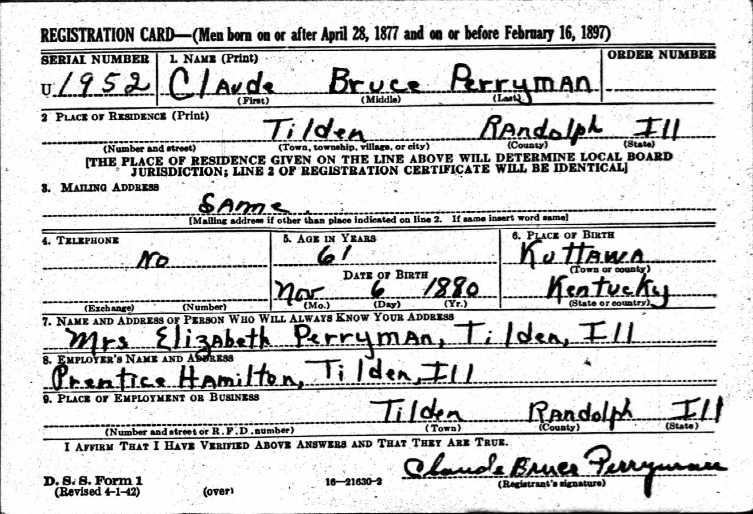 REGISTRATION CARD—(Men born on or after April 28, 1877 and on or before February 16, 1897)
SERIAL NUMBER 1. NAME (Print) ORDER NUMBER
U 1952 Claude Bruce Perryman
(First) (Middle) (Last)
2 PLACE OF RESIDENCE (Print)
Tilden Randolph Ill
(Number and street) (Town, township, village, or city) (County) (State)
[THE PLACE OF RESIDENCE GIVEN ON THE LINE ABOVE WILL DETERMINE LOCAL BOARD
JURISDICTION; LINE 2 OF REGISTRATION CERTIFICATE WILL BE IDENTICAL]
3. MAILING ADDRESS
SAme.
[Mailing address if other than place indicated on line 2. If same insert word same]
4. TELEPHONE 5. AGE IN YEARS 6. PLACE OF BIRTH
No 61 KuTTAWA
DATE OF BIRTH (Town or county)
Nov 6 1880 Kentucky
(Exchange) (Number) (Mo.) (Day) (Yr.) (State or country)
7. NAME AND ADDRESS OF PERSON WHO WILL ALWAYS KNOW YOUR ADDRESS
Mrs Elizabeth Perryman, Tilden, Ill
8. EMPLOYER'S NAME AND ADDRESS
Prentice Hamilton, Tilden, Ill
9. PLACE OF EMPLOYMENT OR BUSINESS
Tilden Randolph Ill
(Number and street or R. F. D. number) (Town) (County) (State)
I AFFIRM THAT I HAVE VERIFIED ABOVE ANSWERS AND THAT THEY ARE TRUE.
Claude Bruce Perryman
D. S. S. Form 1 16—21630-2 (Registrant's signature)
(Revised 4-1-42) (over)